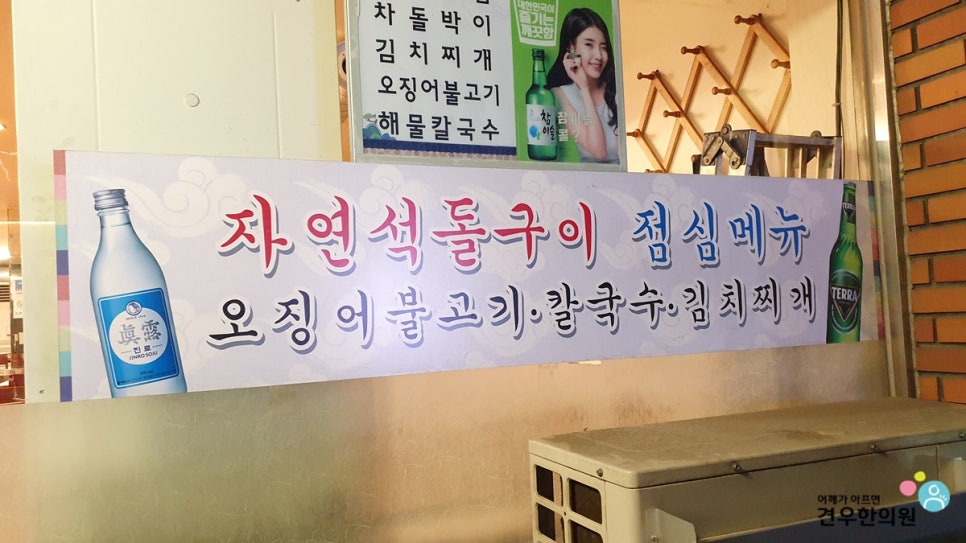 차돌박이
김치찌개
오징어불고기
해물칼국수
대한민국이
즐기는
깨끗함
참이슬
자연석돌구이 점심메뉴
오징어불고기·칼국수·김치찌개
眞露
진로
JINRO SOJU
TERRA
어깨가 아프면
견우한의원